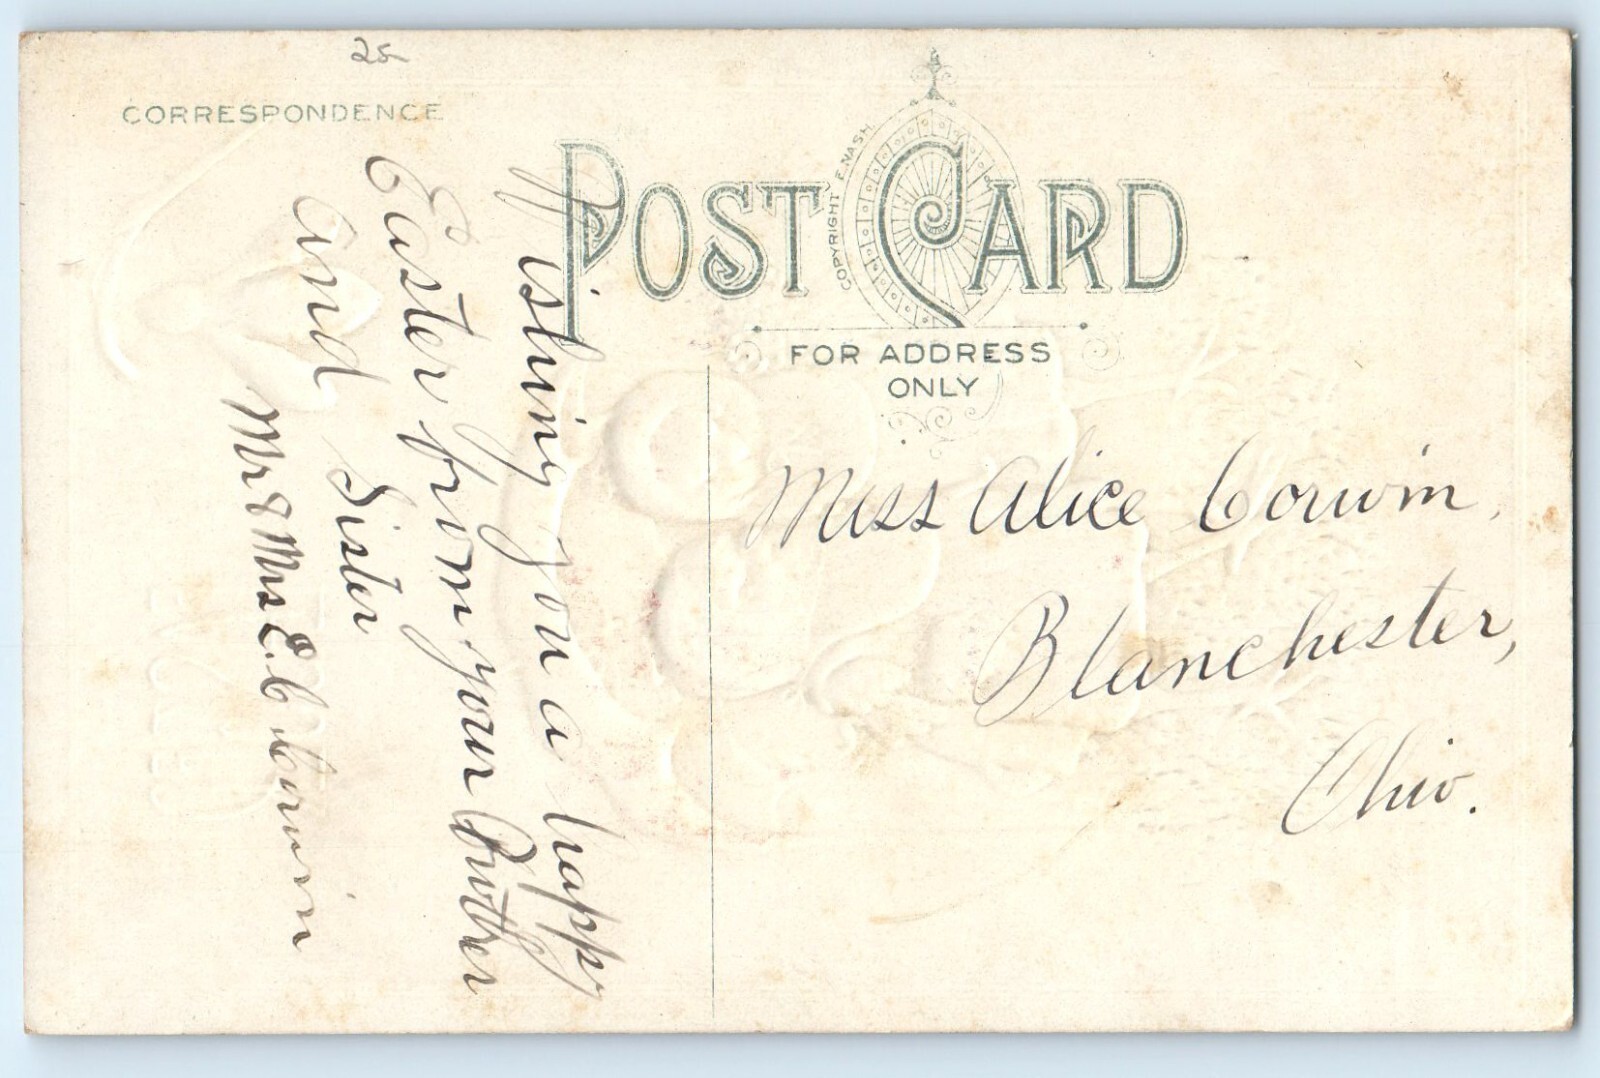 25
CORRESPONDENCE
POST CARD
COPYRIGHT F. NASH.
FOR ADDRESS
ONLY
Wishing you a happy
Easter from your Brother
and Sister
Mr & Mrs E. C. Corwin
Miss Alice Corwin,
Blanchester,
Ohio.